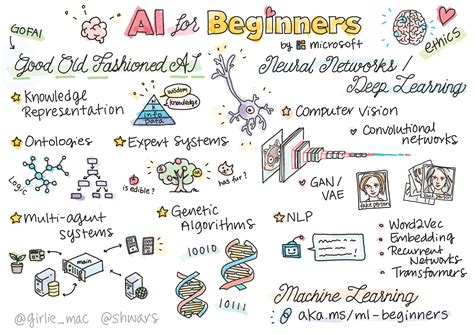 AI for Beginners
by Microsoft
GOFAI
Good Old Fashioned AI
Knowledge
Representation
Wisdom
Knowledge
info
Data
Ontologies
Logic
Expert Systems
is edible?
has fur?
Multi-agent
systems
main
Genetic
Algorithms
10010
10111
ethics
Neural Networks /
Deep Learning
Computer Vision
Convolutional
networks
GAN/
VAE
fake person
NLP
Word2Vec
Embedding
Recurrent
Networks
Transformers
Machine Learning
aka.ms/ml-beginners
@girlie_mac @shwars